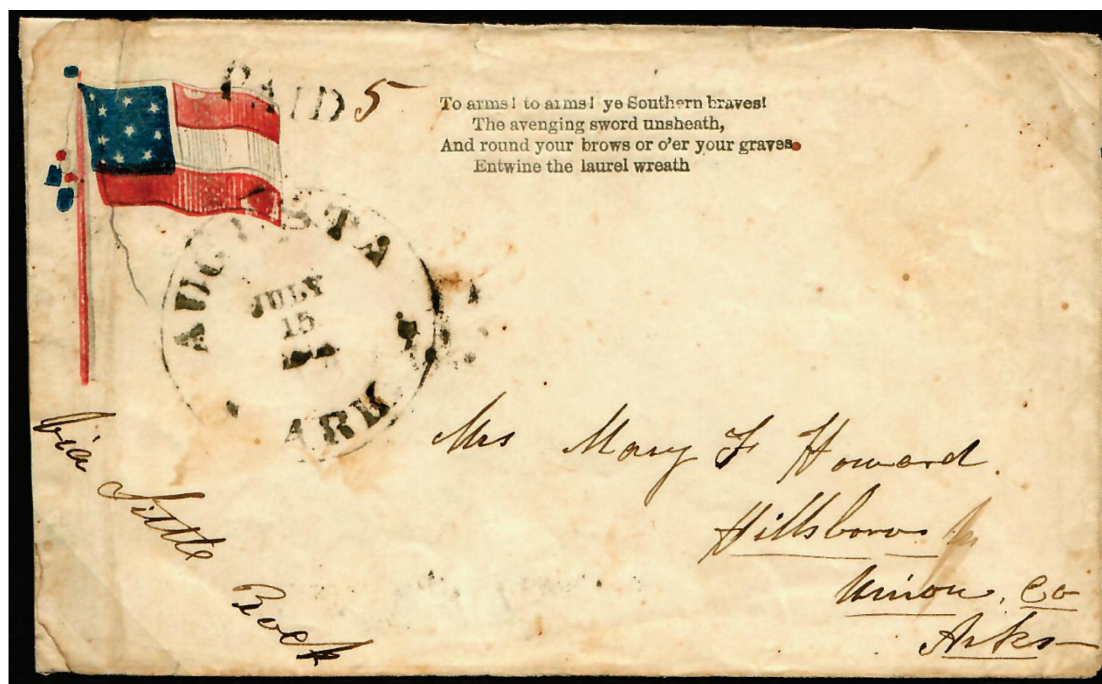 PAID 5
To arms! to arms! ye Southern braves!
The avenging sword unsheath,
And round your brows or o'er your graves
Entwine the laurel wreath
AUGUSTA
JULY
15
ARK
Mrs Mary F Howard.
Hillsboro
Union, Co
Arks
via Little Rock